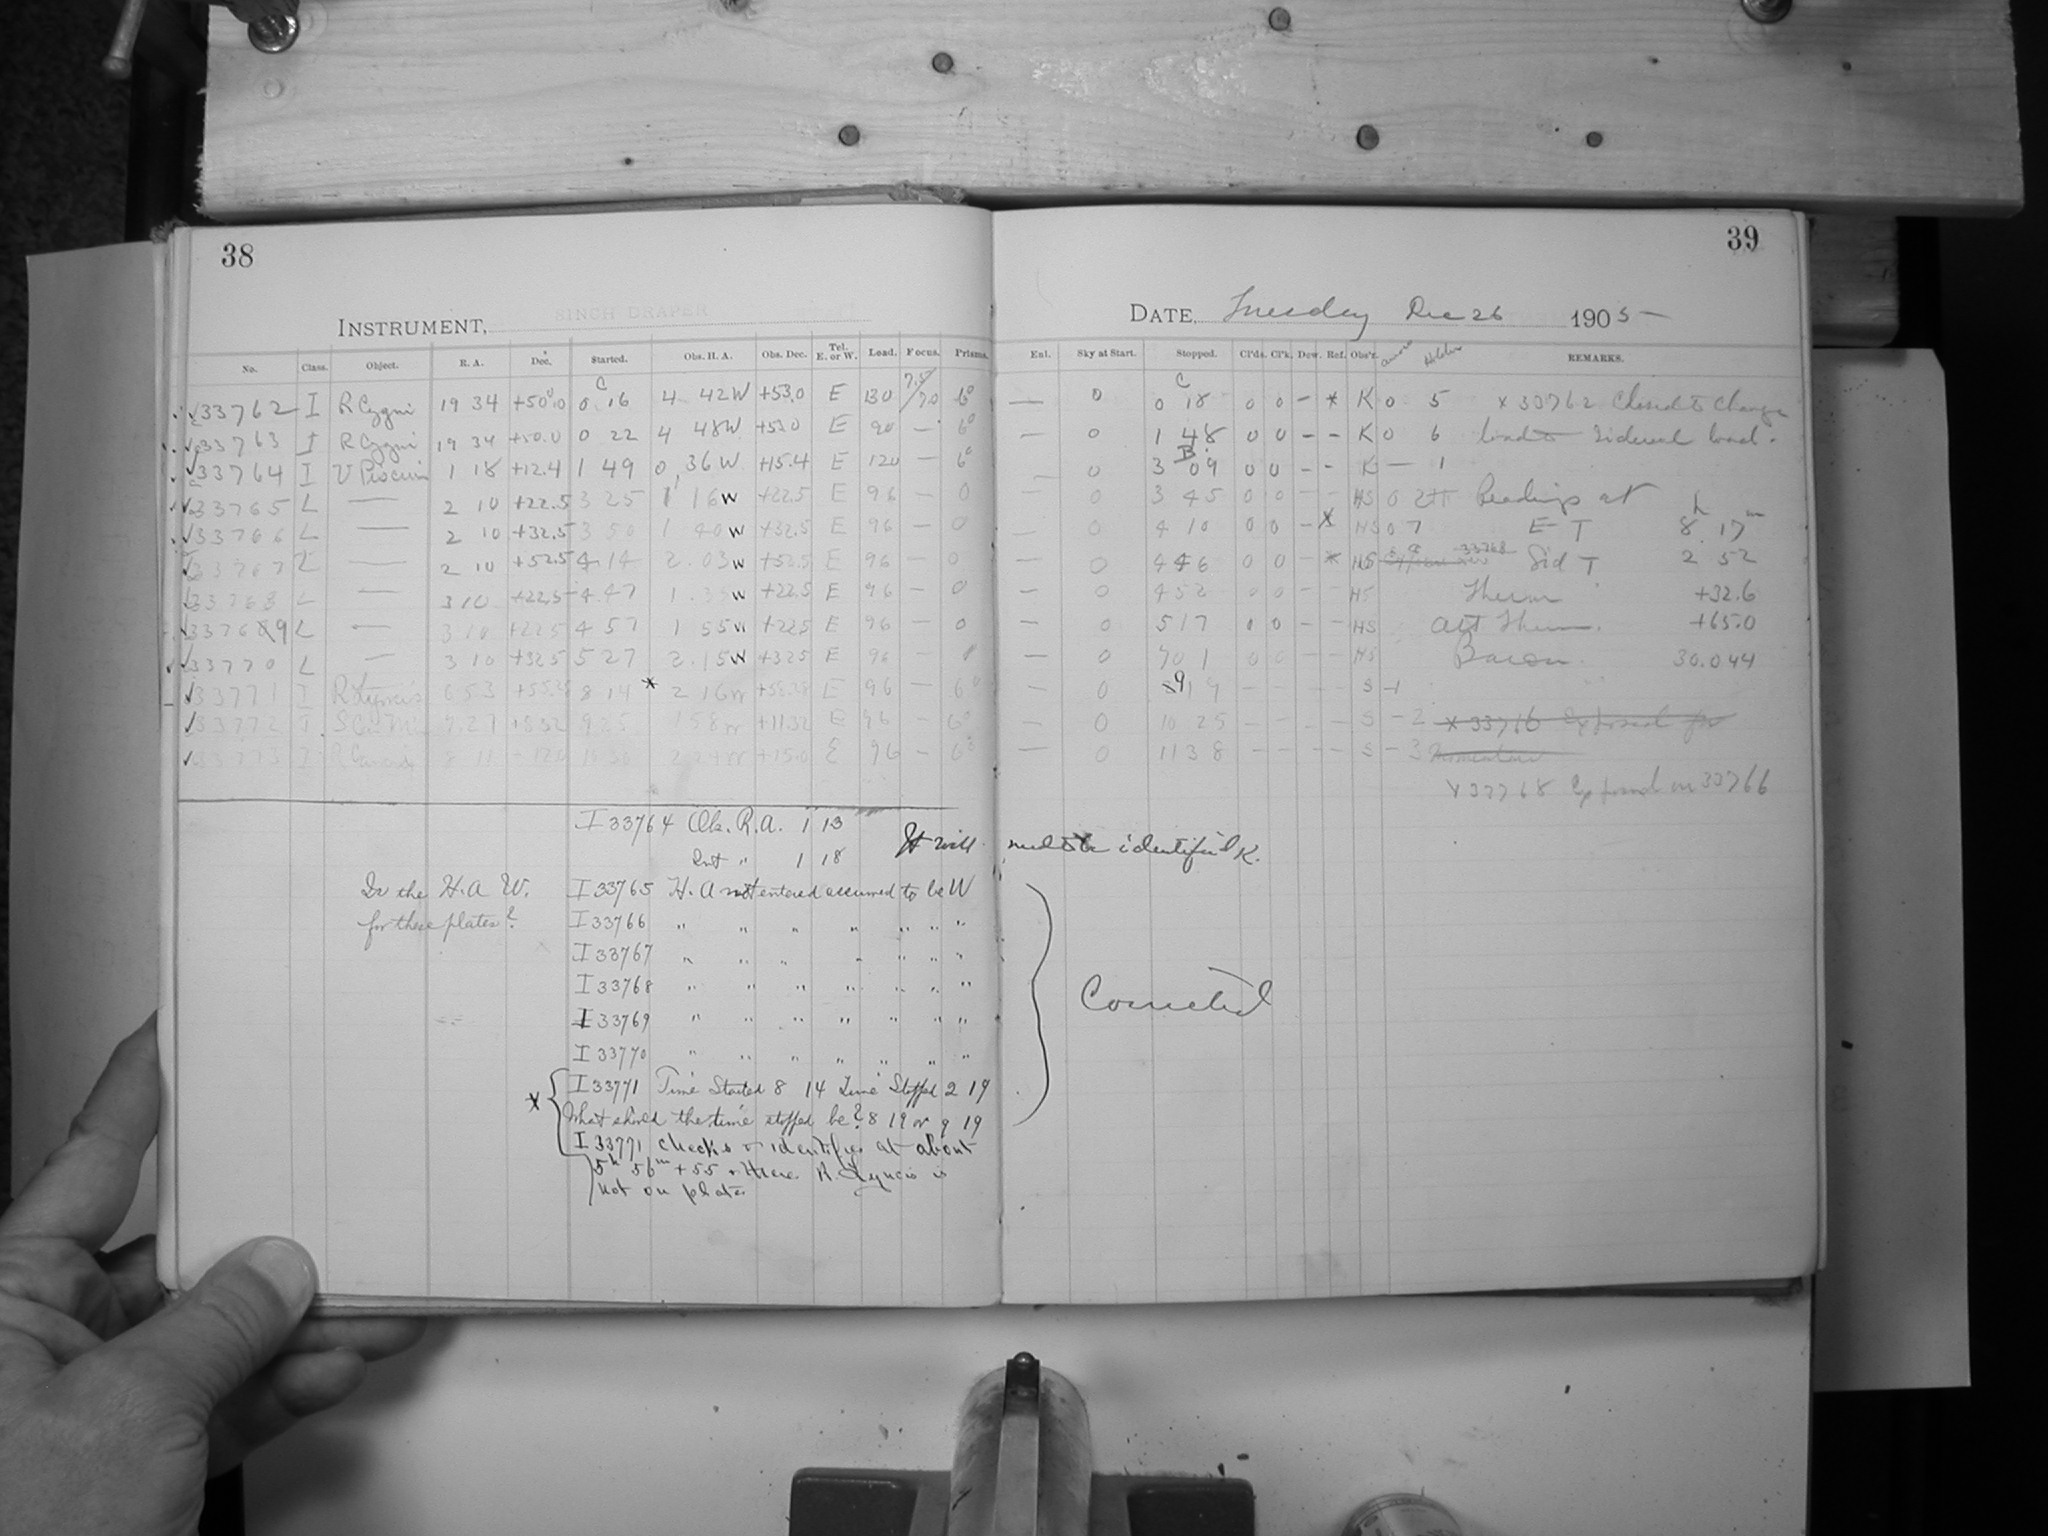 38
INSTRUMENT, 8INCH DRAPER
No. Class. Object. R. A. Dec. Started. Obs. H. A. Obs. Dec. Tel. E. or W. Load. Focus. Prisms.
33762 I R Cygni 19 34 +50.0 C 0 16 4 42W +53.0 E 130 7.5/7.0 6°
33763 I R Cygni 19 34 +50.0 0 22 4 48W +53.0 E 90 — 6°
33764 I U Piscium 1 18 +12.4 1 49 0 36W +15.4 E 120 — 6°
33765 L — 2 10 +22.5 3 25 1 16W +22.5 E 96 — 0
33766 L — 2 10 +32.5 3 50 1 40W +32.5 E 96 — 0
33767 L — 2 10 +52.5 4 14 2.03W +52.5 E 96 — 0
33768 L — 3 10 +22.5 4 47 1 W +22.5 E 96 — 0
33769 L — 3 10 +22.5 4 57 1 55W +22.5 E 96 — 0
33770 L — 3 10 +32.5 5 27 2.15W +32.5 E 96 —
33771 I R Lyncis 6 53 8 14 * 2 16W E 96 — 6°
33772 I 7.27 +8.32 9 25 1 58W +11.32 E 96 — 6°
33773 I 8 11 E 96 — 6°
I 33764 Obs. R.A. 1 13
Int " 1 18
It will be identified K.
Is the H.A W.
for these plates?
I 33765 H.A not entered assumed to be W
I 33766 " " " " " " "
I 33767 " " " " " " "
I 33768 " " " " " " "
I 33769 " " " " " " "
I 33770 " " " " " " "
* I 33771 Time Started 8 14 Time Stopped 2 19
What should the time stopped be? 8 19 or 9 19
I 33771 checks & identifies at about
5h 56m +55 & there R Lyncis is
not on plate
39
DATE, Tuesday Dec 26 1905
Enl. Sky at Start. Stopped. Cl'ds. Cl'k. Dew. Ref. Obs'r. Holder REMARKS.
— 0 C 0 18 0 0 - * K 0 5 x 33762 Closed to change
— 0 1 48 0 0 - - K 0 6 load to sidereal load.
— 0 B. 3 09 0 0 - - K — 1
— 0 3 45 0 0 - - HS 0 Readings at
— 0 4 10 0 0 - x HS 0 7 E T 8h 17m
— 0 4 46 0 0 - * HS 33768 Sid T 2 52
0 4 52 0 0 - - HS Therm +32.6
— 0 5 17 0 0 - - HS Att Therm. +65.0
— 0 0 0 - - HS Barom. 30.044
— 0 9 19 - - - - S -1
— 0 10 25 - - - - S -2 x 33766 Exposed for
— 0 11 38 - - - - S -3
x 33768 Exposed on 33766
Corrected